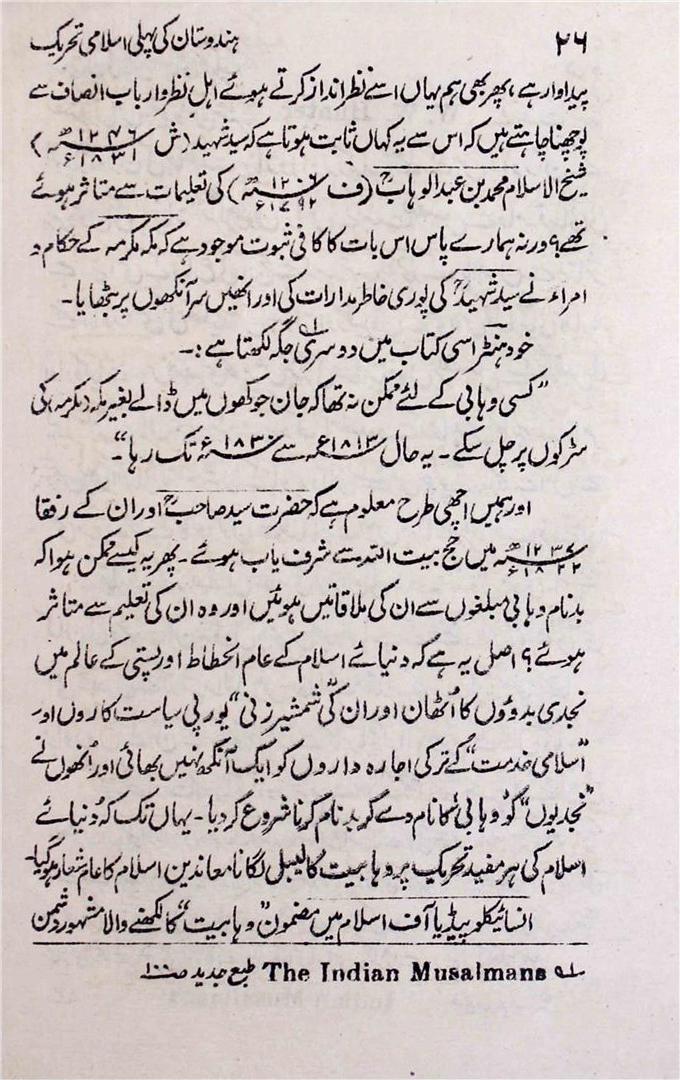 ۲۶
ہندوستان کی پہلی اسلامی تحریک
پیداوار ہے، پھر بھی ہم یہاں اسے نظر انداز کرتے ہوئے اہلِ نظر وارباب انصاف سے
پوچھنا چاہتے ہیں کہ اس سے یہ کہاں ثابت ہوتا ہے کہ سید شہید (ش ۱۲۴۶ھ ۱۸۳۱ء)
شیخ الاسلام محمد بن عبد الوہابؒ (ف ۱۲۰۶ھ ۱۷۹۲ء) کی تعلیمات سے متاثر ہوئے
تھے؟ ورنہ ہمارے پاس اس بات کا کافی ثبوت موجود ہے کہ مکہ مکرمہ کے حکام و
امراء نے سید شہیدؒ کی پوری خاطر مدارات کی اور انھیں سر آنکھوں پر بٹھایا۔
خود ہنٹر اسی کتاب میں دوسری جگہ لکھتا ہے:۔ ؂۱
”کسی وہابی کے لئے ممکن نہ تھا کہ جان جوکھوں میں ڈالے بغیر مکہ (مکرمہ) کی
سڑکوں پر چل سکے۔ یہ حال ۱۸۱۳ء سے ۱۸۳۰ء تک رہا“۔
اور ہمیں اچھی طرح معلوم ہے کہ حضرت سید صاحبؒ اور ان کے رفقا
۱۲۳۷ھ ۱۸۲۲ء میں حج بیت اللہ سے شرف یاب ہوئے۔ پھر یہ کیسے ممکن ہوا کہ
بدنام وہابی مبلغوں سے ان کی ملاقاتیں ہوئیں اور وہ ان کی تعلیم سے متاثر
ہوئے؟ اصل یہ ہے کہ دنیائے اسلام کے عام انحطاط اور پستی کے عالم میں
نجدی بدوؤں کا اُٹھان اور ان کی شمشیر زنی ”یورپی سیاست کاروں اور
”اسلامی خدمت“ کے ترکی اجارہ داروں کو ایک آنکھ نہیں بھائی اور اُنھوں نے
”نجدیوں“ کو ”وہابی“ کا نام دے کر بدنام کرنا شروع کر دیا۔ یہاں تک کہ دُنیائے
اسلام کی ہر مفید تحریک پر وہابیت کا لیبل لگانا معاندین اسلام کا عام شعار ہو گیا۔
انسائیکلو پیڈیا آف اسلام میں مضمون ”وہابیت“ کا لکھنے والا مشہور دشمن
؂۱ The Indian Musalmans طبع جدید ص ۱۰۰